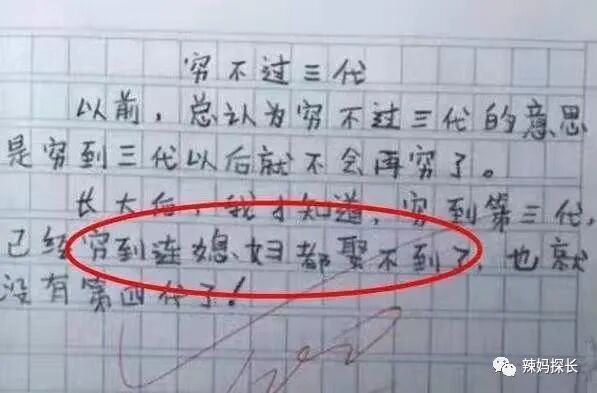 穷不过三代
以前，总认为穷不过三代的意思
是穷到三代以后就不会再穷了。
长大后，我才知道，穷到第三代，
已经穷到连媳妇都娶不到了，也就
没有第四代了！
辣妈探长